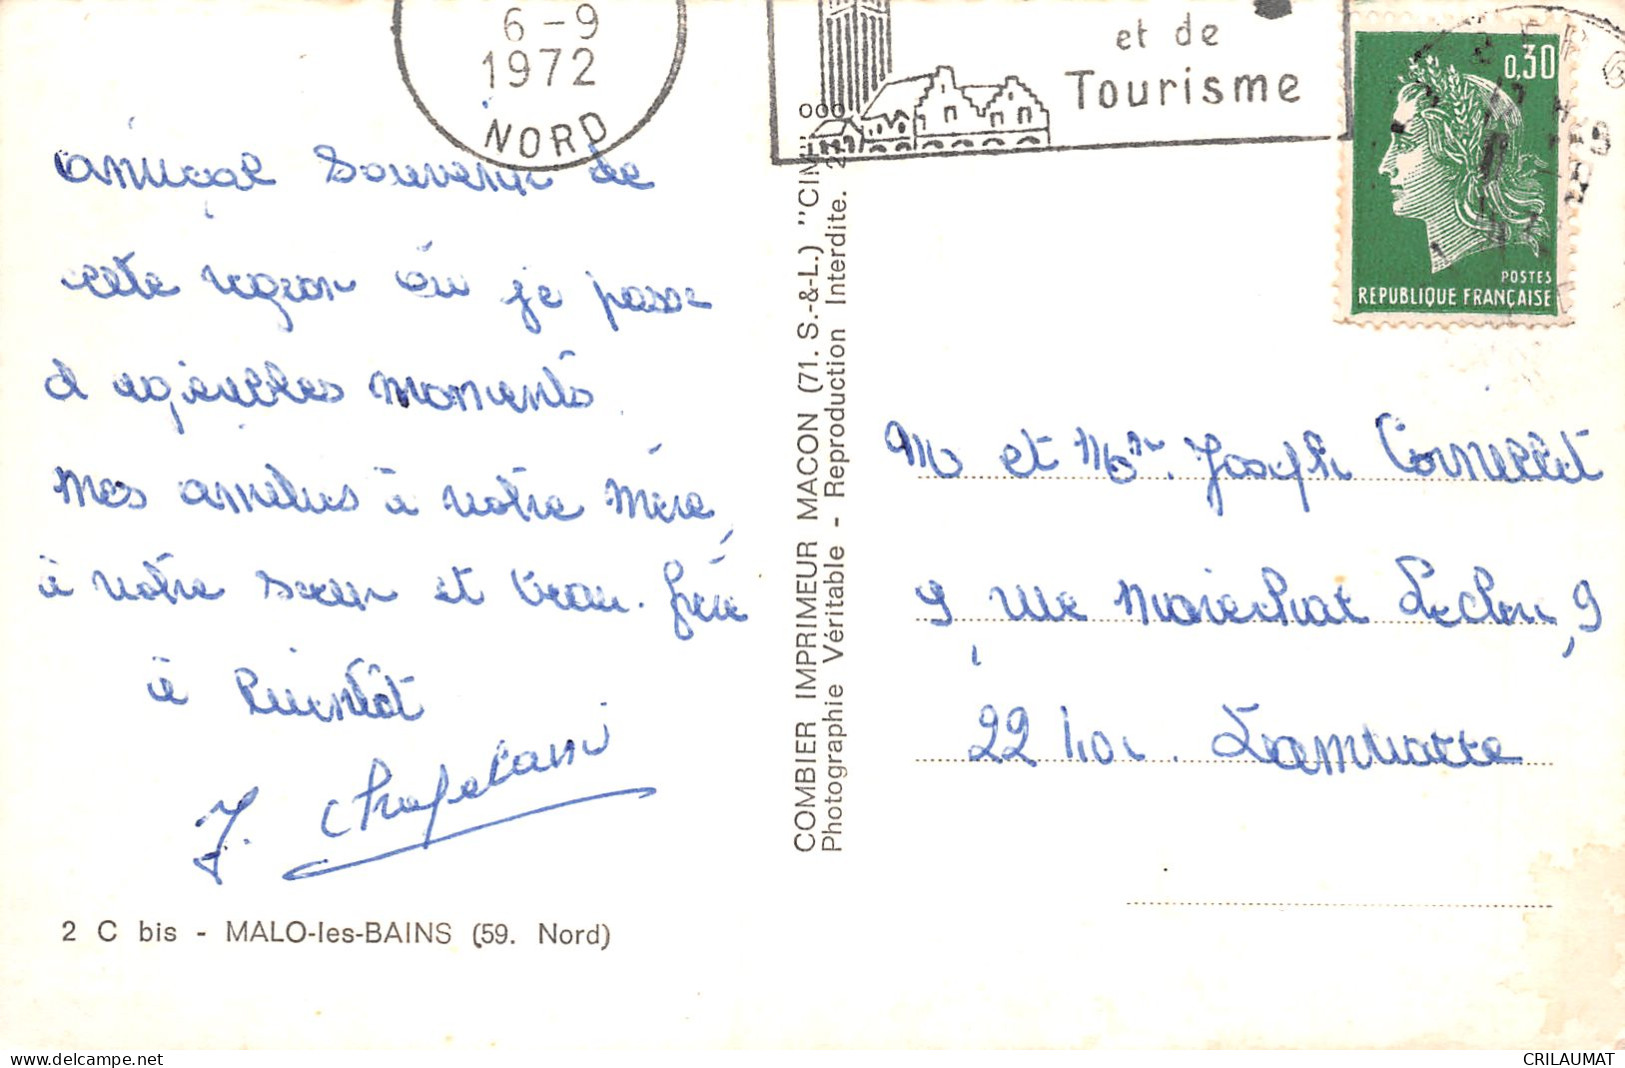 6-9
1972
NORD
et de
Tourisme
0,30
POSTES
REPUBLIQUE FRANÇAISE
amical Souvenir de
cette region où je passe
d agréables moments
mes amitiés à votre mère,
à votre sœur et beau-frère
à bientôt
J. Chapelain
2 C bis - MALO-les-BAINS (59. Nord)
COMBIER IMPRIMEUR MACON (71. S.-&-L.) "CIM"
Photographie Véritable - Reproduction Interdite.
M et Mme. Joseph Cornillet
9, rue Marechal Leclerc, 9
22 400. Lamballe
CRILAUMAT